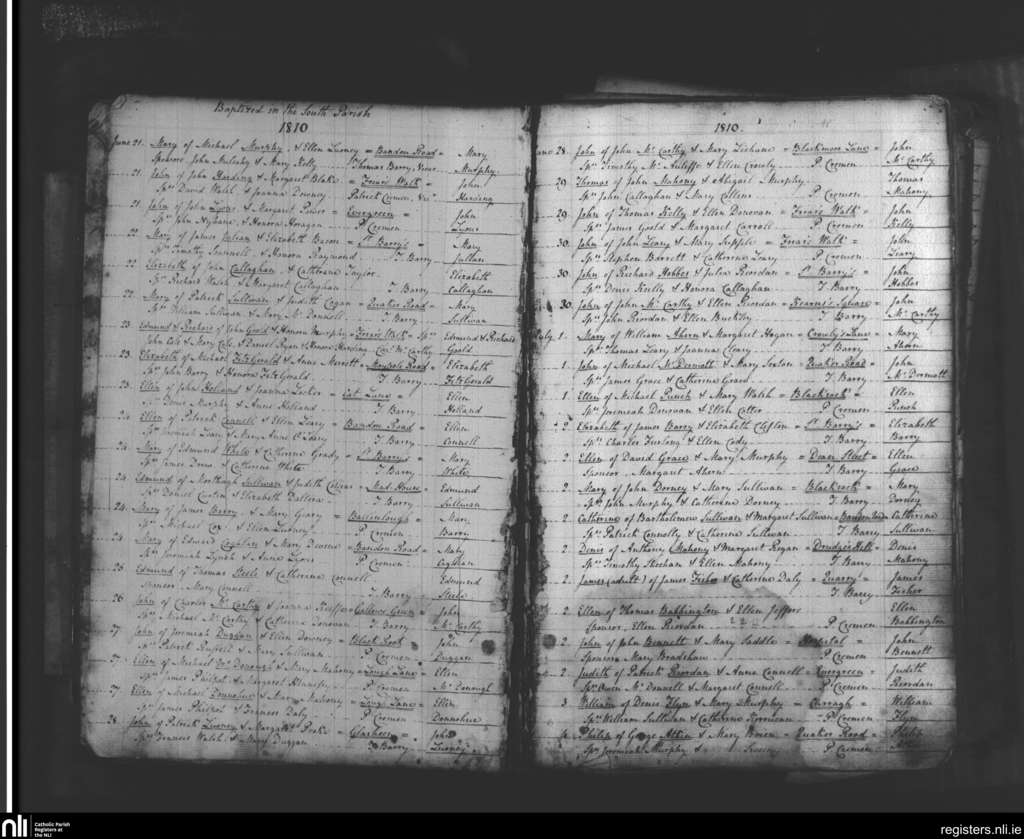 Baptized in the South Parish
1810
June 21. Mary of Michael Murphy, & Ellen = Bandon Road = Mary
Sponsors John Mulcahy & Mary Kelly Thomas Barry, Murphy
21. John of John Harding & Margaret Blake = Friars Walk = John
Sprs David Walsh & Joanna Downey Patrick Cremen, Harding
21. John of John Lyons & Margaret Power = Evergreen = John
Sprs John & Honora Horagan P. Cremen Lyons
22. Mary of James & Elizabeth = St. Barry's = Mary
Sprs Timothy & Honora Raymond T Barry
22. Elizabeth of John Callaghan & Catherine Taylor Elizabeth
Sprs Richard Walsh & Margaret Callaghan T Barry Callaghan
22. Mary of Patrick Sullivan & Judith Cogan = Quaker Road = Mary
Sprs William Sullivan & Mary Mc Donnell Sullivan
23. Edmund & Richard of John Goold & Honora Murphy = Friars Walk = Sprs Edmund & Richard
John Cole & Mary Cole, & Daniel Ryan & Honora Harding Mc Carthy Goold
23. Elizabeth of Michael FitzGerald & Anne = Maypole Road = Elizabeth
Sprs John Barry & Honora FitzGerald T Barry FitzGerald
23. Ellen of John Holland & Joanna = Cat Lane = Ellen
Sprs Denis Murphy & Anne Holland T Barry Holland
24. Ellen of Patrick Connell & Ellen Leary = Bandon Road = Ellen
Sprs Jeremiah Leary & Mary Anne T Barry Connell
24. Mary of Edmund White & Catherine Grady = St. Barry's = Mary
Sprs James & Catherine White T Barry White
24. Edmund of Mortaugh Sullivan & Judith = Mad House = Edmund
Sprs Daniel & Elizabeth T Barry Sullivan
24. Mary of James Barry & Mary Geary = Ballinlough = Mary
Sprs Michael Cox & Ellen P. Cremen Barry
24. Mary of Edward Coghlan & Mary = Bandon Road = Mary
Sprs Jeremiah Lynch & Anne P. Cremen Coghlan
25. Edmund of Thomas Steele & Catherine Connell Edmund
Sponsor Mary Connell T Barry Steele
26. John of Charles Mc Carthy & Joanna = Gallows Green = John
Sprs Michael Mc Carthy & Catherine Donovan T Barry Mc Carthy
27. John of Jeremiah Duggan & Ellen Downey = Black Rock = John
Sprs Patrick & Mary Sullivan P Cremen Duggan
27. Ellen of Michael Mc Donough & Mary Mahony = Lough Lane = Ellen
Sprs James Philpot & Margaret P Cremen Mc Donough
27. Ellen of Michael Donnohue & Mary Mahony = Lane = Ellen
Sprs James Philpot & Frances Daly P Cremen Donnohue
28. John of Patrick & Margaret = Glasheen = John
Sprs Francis Walsh & Mary Duggan T Barry
1810.
June 28. John of John Mc Carthy & Mary = Blackmore Lane = John
Sprs Timothy Mc Auliffe & Ellen Crowly P. Cremen Mc Carthy
29. Thomas of John Mahony & Abigail Murphy Thomas
Sprs John Callaghan & Mary Collins P Cremen Mahony
29. John of Thomas Kelly & Ellen Donovan = Friars Walk = John
Sprs James Goold & Margaret Carroll P Cremen Kelly
30. John of John Leary & Mary Supple = Friars Walk = John
Sprs Stephen Barrett & Catherine Leary P. Cremen Leary
30. John of Richard Hobler & Julia Riordan = St. Barry's = John
Sprs Denis Reilly & Honora Callaghan T Barry Hobler
30. John of John Mc Carthy & Ellen Riordan = Kearns's Square = John
Sprs John Riordan & Ellen Buckley T Barry Mc Carthy
July 1. Mary of William Ahern & Margaret Hogan = Crowly's Lane = Mary
Sprs Thomas Leary & Joanna Leary T Barry Ahern
1. John of Michael Mc Dermott & Mary Sexton = Quaker Road = John
Sprs James Grace & Catherine Grace T Barry Mc Dermott
1. Ellen of Michael Punch & Mary Walsh = Blackrock = Ellen
Sprs Jeremiah Donovan & Ellen Cotter P Cremen Punch
2 Elizabeth of James Barry & Elizabeth Clifton = St. Barry's = Elizabeth
Sprs Charles Furlong & Ellen Cody T Barry Barry
2. Ellen of David Grace & Mary Murphy = Dean Street = Ellen
Sponsor Margaret Ahern T Barry Grace
2. Mary of John Dorney & Mary Sullivan = Blackrock = Mary
Sprs John Murphy & Catherine Dorney T Barry Dorney
2. Catherine of Bartholomew Sullivan & Margaret Sullivan = Bandon Road = Catherine
Sprs Patrick Connolly & Catherine Sullivan T Barry Sullivan
2. Denis of Anthony Mahony & Margaret Regan = Hill = Denis
Sprs Timothy Sheehan & Ellen Mahony T Barry Mahony
2. James (adult) of James Fisher & Catherine Daly = Quarry = James
T Barry Fisher
2. Ellen of Thomas Babbington & Ellen Jeffers Ellen
Sponsor, Ellen Riordan P Cremen Babbington
2. John of John Bennett & Mary Saddle = Hospital = John
Sponsor Mary Bradshaw P Cremen Bennett
2. Judith of Patrick Riordan & Anne Connell = Evergreen = Judith
Sprs Owen Mc Donnell & Margaret Connell P. Cremen Riordan
3 William of Denis Flyn & Mary Murphy = Curragh = William
Sprs William Sullivan & Catherine P Cremen Flyn
Philip of George & Mary = Quaker Road = Philip
Sprs Jeremiah Murphy & P Cremen
nli
Catholic Parish
Registers at
the NLI
registers.nli.ie